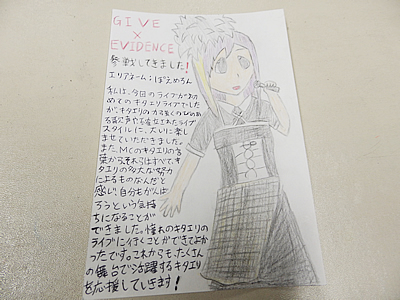 GIVE
×
EVIDENCE
参戦してきました！
エリアネーム：ぱえめろん
私は、今回のライブが初
めてのキタエリライブでした
が、キタエリの力強くのびのび
る歌声や確立されたライブ
スタイルに、大いに楽し
ませていただきました。
また、MCのキタエリの言
葉から、それらはすべて、キ
タエリの多大な努力
によるものなんだと
感じ、自分もがんば
ろうという気持
ちになることが
できました。憧れのキタエリの
ライブに行くことができてよか
ったです。これからも、たくさん
の舞台で活躍するキタエリ
を応援していきます！